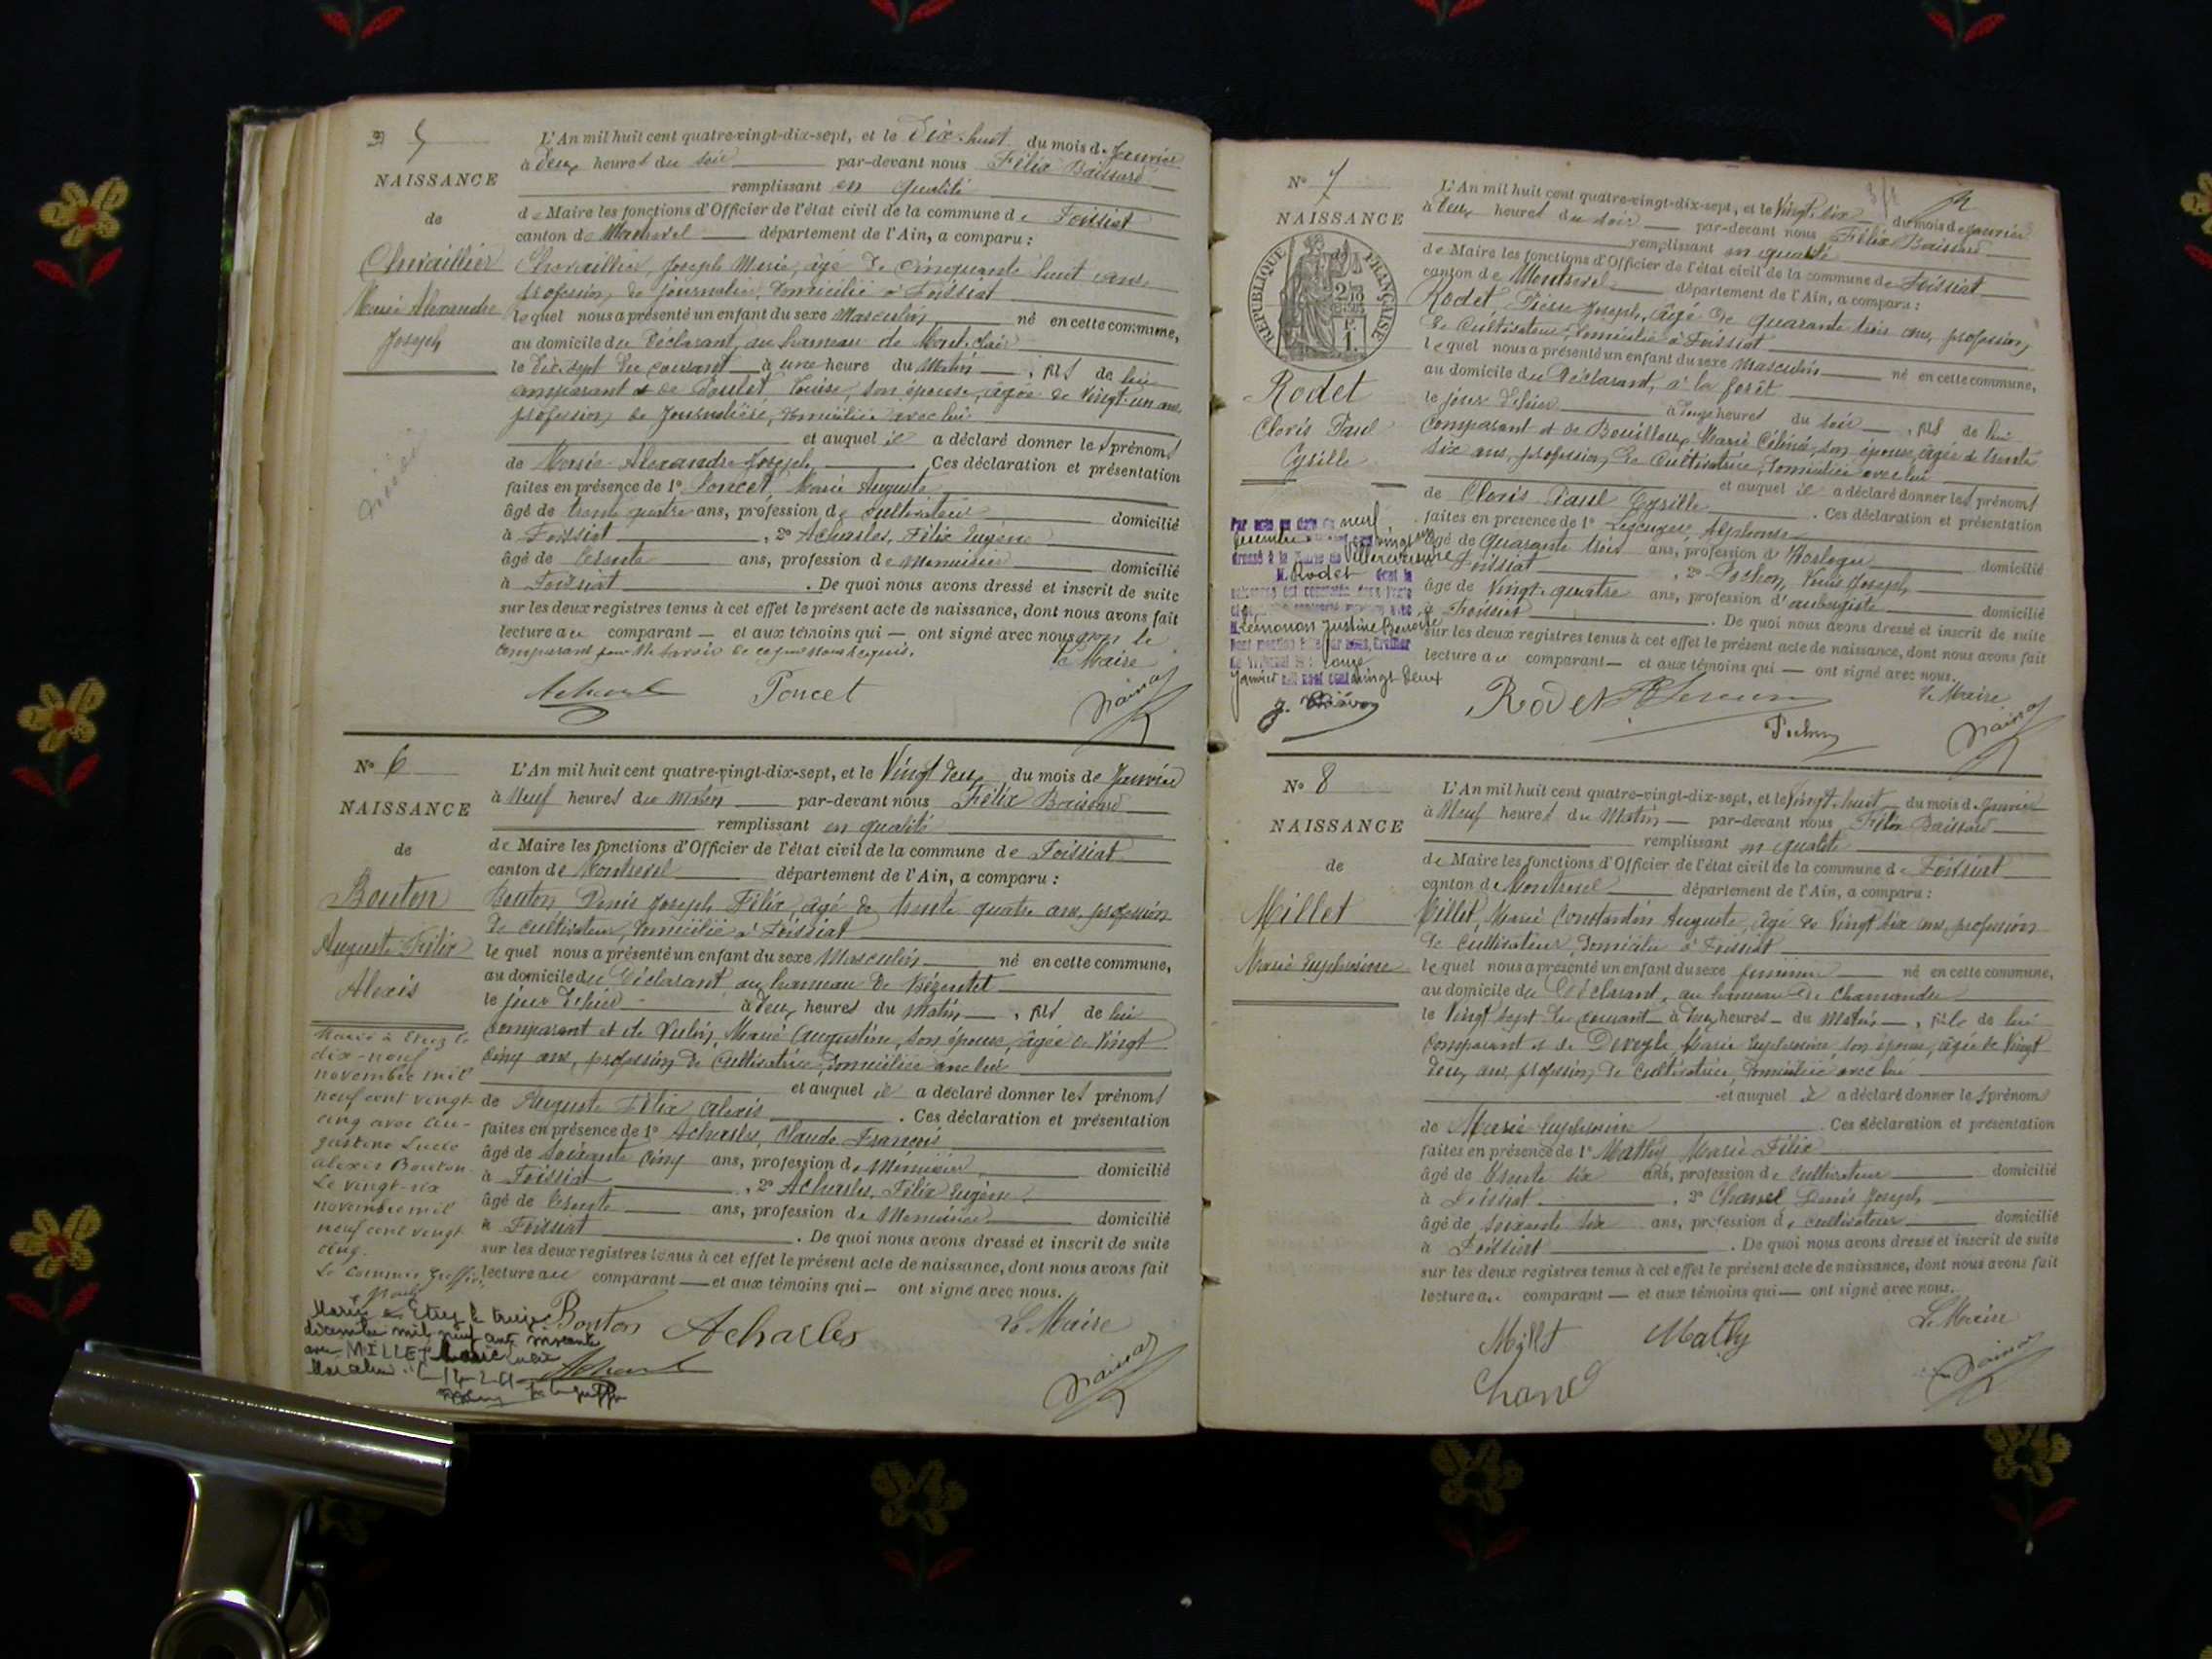 5
NAISSANCE
de
Chevaillier
Marie Alexandre
Joseph
L'An mil huit cent quatre-vingt-dix-sept, et le Dix-huit du mois de Janvier
à Deux heures du soir par-devant nous Félix Baissard
remplissant en qualité
de Maire les fonctions d'Officier de l'état civil de la commune de Foissiat
canton de Montrevel département de l'Ain, a comparu :
Chevaillier, Joseph Marie, âgé de Cinquante huit ans,
profession de journalier, domicilié à Foissiat
lequel nous a présenté un enfant du sexe Masculin né en cette commune,
au domicile du Déclarant, au hameau de
le dix sept du courant à une heure du Matin, fils de lui
comparant et de Louise, son épouse, âgée de Vingt-un ans,
profession de Journalière, domiciliée avec lui
et auquel il a déclaré donner les prénoms
de Marie-Alexandre-Joseph. Ces déclaration et présentation
faites en présence de 1° Poncet, Marie Auguste
âgé de trente quatre ans, profession de cultivateur domicilié
à Foissiat, 2° Acharles, Félix Eugène
âgé de trente ans, profession de Menuisier domicilié
à Foissiat. De quoi nous avons dressé et inscrit de suite
sur les deux registres tenus à cet effet le présent acte de naissance, dont nous avons fait
lecture au comparant et aux témoins qui ont signé avec nous non le
comparant pour ne savoir de ce par nous requis.
Le Maire
Poncet
N° 6
NAISSANCE
de
Bouton
Auguste Félix
Alexis
L'An mil huit cent quatre-vingt-dix-sept, et le Vingt deux du mois de Janvier
à Neuf heures du Matin par-devant nous Félix Baissard
remplissant en qualité
de Maire les fonctions d'Officier de l'état civil de la commune de Foissiat
canton de Montrevel département de l'Ain, a comparu :
Bouton Denis Joseph Félix, âgé de trente quatre ans, profession
de cultivateur, domicilié à Foissiat
lequel nous a présenté un enfant du sexe Masculin né en cette commune,
au domicile du Déclarant au hameau de
le jour d'hier à deux heures du Matin, fils de lui
comparant et de Marie Augustine, son épouse, âgée de Vingt
cinq ans, profession de Cultivatrice, domiciliée avec lui
et auquel il a déclaré donner les prénoms
de Auguste Félix Alexis. Ces déclaration et présentation
faites en présence de 1° Acharles, Claude François
âgé de soixante cinq ans, profession de Menuisier domicilié
à Foissiat, 2° Acharles, Félix Eugène
âgé de trente ans, profession de Menuisier domicilié
à Foissiat. De quoi nous avons dressé et inscrit de suite
sur les deux registres tenus à cet effet le présent acte de naissance, dont nous avons fait
lecture au comparant et aux témoins qui ont signé avec nous.
Marié à Etrez le
dix-neuf
novembre mil
neuf cent vingt
cinq avec Au-
gustine Lucie
Alexis Bouton
Le vingt-six
novembre mil
neuf cent vingt
cinq.
Marié à Etrez le treize
décembre mil neuf cent soixante
avec MILLET
Bouton Acharles Le Maire
N° 7
NAISSANCE
RÉPUBLIQUE FRANÇAISE
Rodet
Cloris Paul
Cyrille
L'An mil huit cent quatre-vingt-dix-sept, et le Vingt-six du mois de Janvier
à Deux heures du soir par-devant nous Félix Baissard
remplissant en qualité
de Maire les fonctions d'Officier de l'état civil de la commune de Foissiat
canton de Montrevel département de l'Ain, a comparu :
Rodet, Joseph, âgé de quarante trois ans, profession
de Cultivateur, domicilié à Foissiat
lequel nous a présenté un enfant du sexe Masculin né en cette commune,
au domicile du Déclarant, à la forêt
le jour d'hier à heures du soir, fils de lui
comparant et de Marie son épouse, âgée de trente
six ans, profession de Cultivatrice, domiciliée avec lui
et auquel il a déclaré donner les prénoms
de Cloris Paul Cyrille. Ces déclaration et présentation
faites en présence de 1° Alphonse
âgé de quarante trois ans, profession d'Horloger domicilié
à Foissiat, 2° Pochon Joseph
âgé de Vingt-quatre ans, profession d'aubergiste domicilié
à Foissiat. De quoi nous avons dressé et inscrit de suite
sur les deux registres tenus à cet effet le présent acte de naissance, dont nous avons fait
lecture au comparant et aux témoins qui ont signé avec nous.
Par acte en date du neuf
décembre
dressé à la Mairie de Villereversure
M. Rodet dont la
Justine
janvier mil neuf cent vingt deux
Rodet Le Maire
N° 8
NAISSANCE
de
Millet
Marie Euphrosine
L'An mil huit cent quatre-vingt-dix-sept, et le Vingt-huit du mois de Janvier
à Neuf heures du Matin par-devant nous Félix Baissard
remplissant en qualité
de Maire les fonctions d'Officier de l'état civil de la commune de Foissiat
canton de Montrevel département de l'Ain, a comparu :
Millet, Marie Constantin Auguste, âgé de Vingt six ans, profession
de Cultivateur, domicilié à Foissiat
lequel nous a présenté un enfant du sexe féminin né en cette commune,
au domicile du Déclarant, au hameau de Chamandre
le Vingt sept du courant à deux heures du Matin, fille de lui
comparant et de Marie Euphrosine, son épouse, âgée de Vingt
deux ans, profession de Cultivatrice, domiciliée avec lui
et auquel il a déclaré donner les prénoms
de Marie-Euphrosine. Ces déclaration et présentation
faites en présence de 1° Mathy Marie Félix
âgé de trente six ans, profession de cultivateur domicilié
à Foissiat, 2° Chanel Denis Joseph
âgé de soixante six ans, profession de cultivateur domicilié
à Foissiat. De quoi nous avons dressé et inscrit de suite
sur les deux registres tenus à cet effet le présent acte de naissance, dont nous avons fait
lecture au comparant et aux témoins qui ont signé avec nous.
Le Maire
Millet Mathy
Chanel